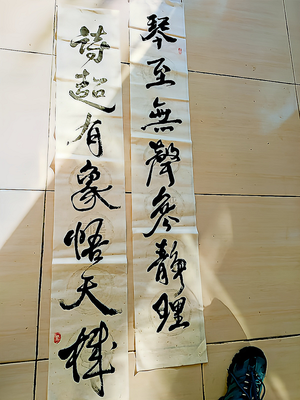 琴至無聲參靜理
詩超有象悟天機